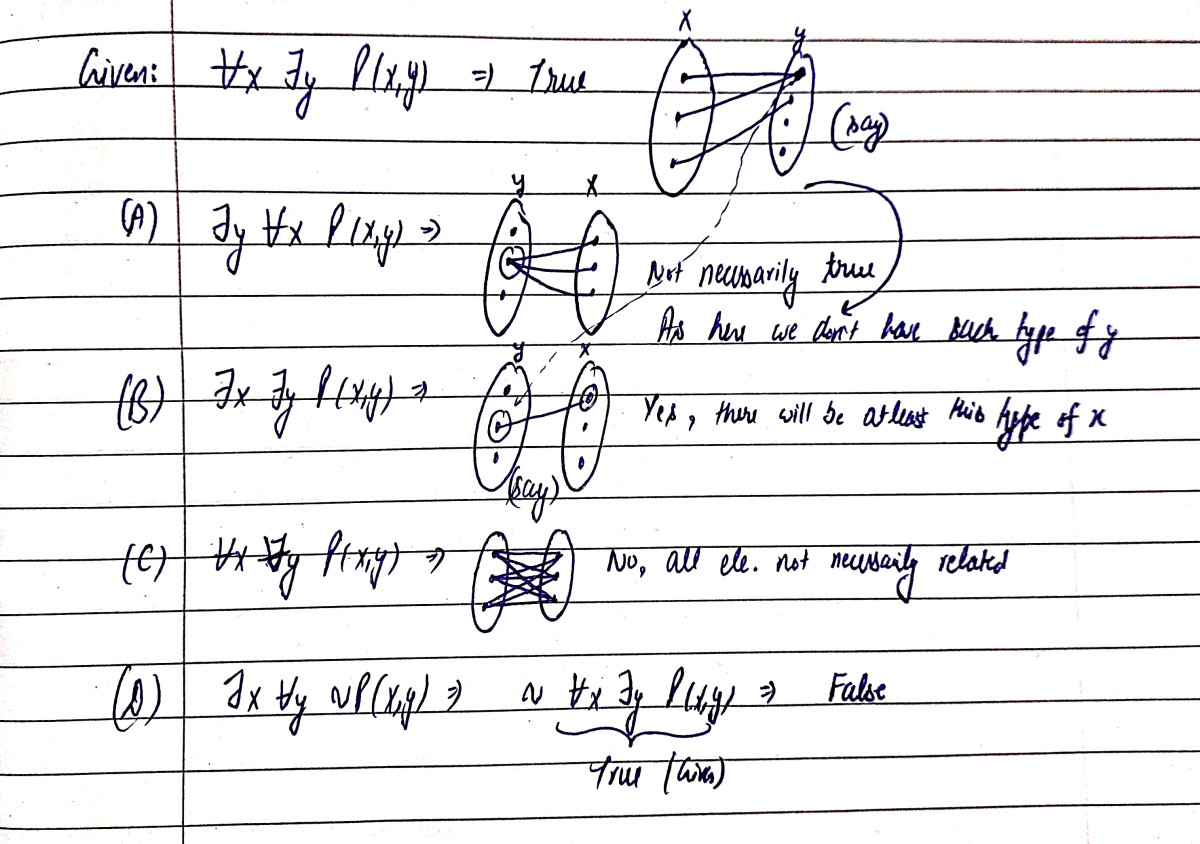 x
y
Given: ∀x ∃y P(x,y) ⇒ True
(say)
y x
(A) ∃y ∀x P(x,y) ⇒
Not necessarily true
As here we don't have such type of y
y x
(B) ∃x ∃y P(x,y) ⇒ Yes, there will be atleast this type of x
(say)
(C) ∀x ∀y P(x,y) ⇒ No, all ele. not necessarily related
(D) ∃x ∀y ~P(x,y) ⇒ ~ ∀x ∃y P(x,y) ⇒ False
True (Given)